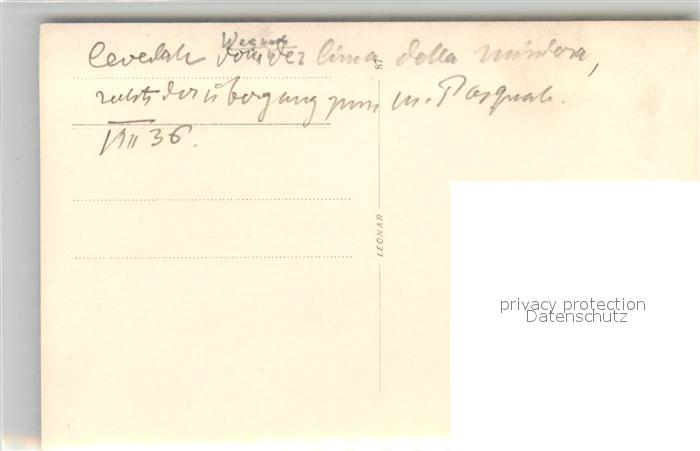 Cevedale von der Cima della
rechts der Übergang zum M. Pasquale.
VIII 36.
87
LEONAR
privacy protection
Datenschutz